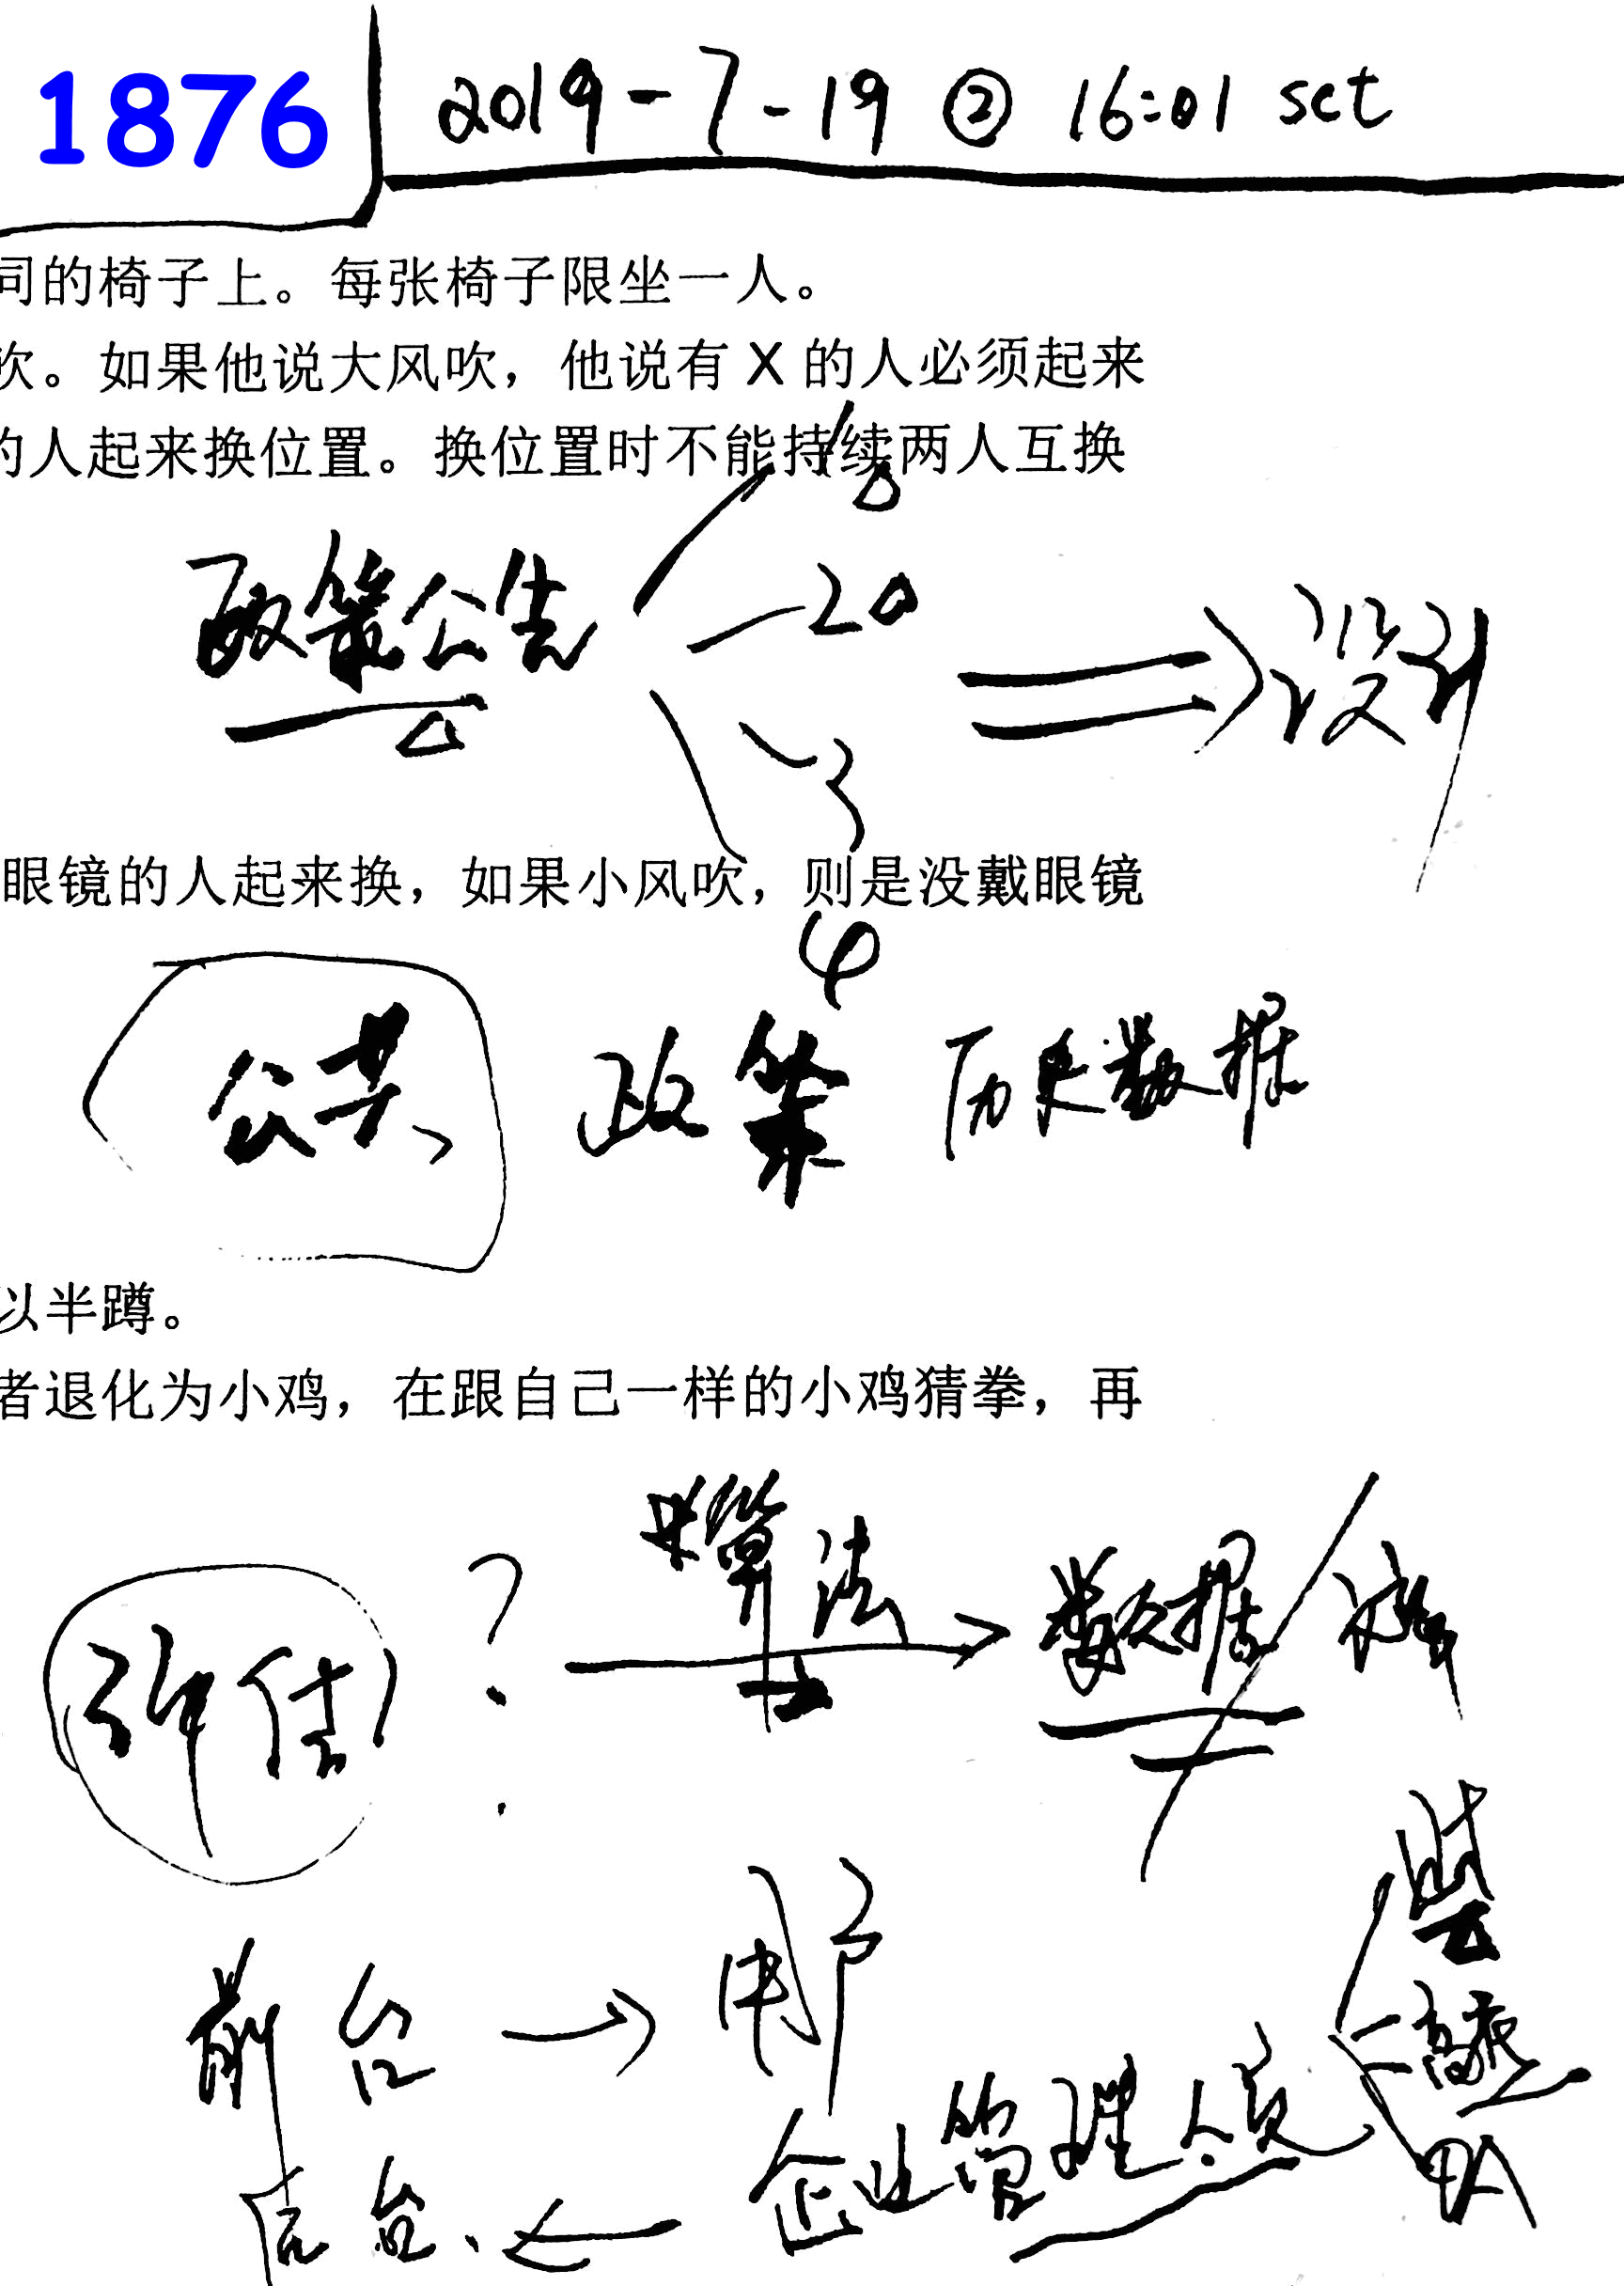 1876
2019-7-19 ② 16:01 sct
同的椅子上。每张椅子限坐一人。
吹。如果他说大风吹，他说有 X 的人必须起来
的人起来换位置。换位置时不能持续两人互换
政策公告
20
3
设计
眼镜的人起来换，如果小风吹，则是没戴眼镜
4
公共 政策 历史数据
以半蹲。
者退化为小鸡，在跟自己一样的小鸡猜拳，再
评估 ? 算法 数据
前台 → 用户
企业管理人员
后台